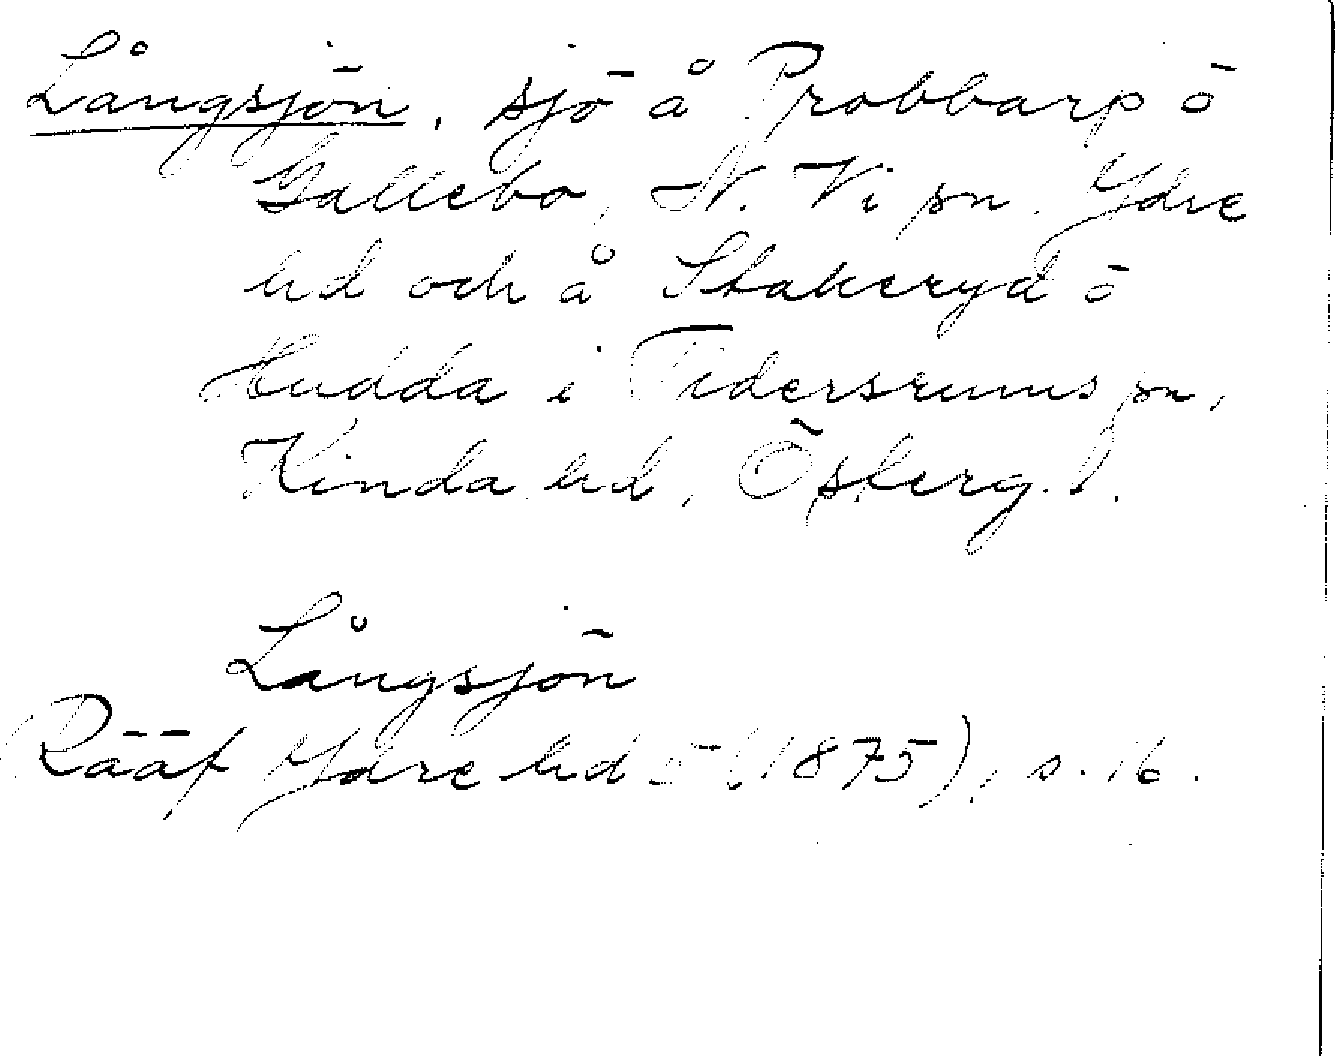 Långsjön, sjö å Probbarp o
Gallebo, N. Vi sn. Ydre
hd och å Stakeryd o
Hudda i Tidersrums sn,
Kinda hd, Österg. l.
Långsjön
Rääf Ydre hd 5 (1875), s. 16.